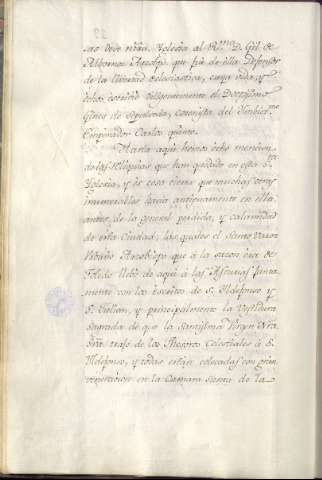 mo debe nřra. Yglesia al Rmo. D. Gil de
Albornoz Arzobpo. que fue de ella Defensor
de la libertad eclesiastica, cuya vida, y
échos escrivió diligentemente el Doctissimo
Gines de Sepulveda, coronista del Imbict.mo
Emperador Carlos quinto.
Hasta aqui hemos écho mencion
de las Reliquias que han quedado en esta Sta.
Yglesia, y és cosa cierta que muchas otras
innumerables havia antiguamente en ella,
antes de la general perdida, y calamidad
de esta Ciudad; las quales el Santo Varon
Urbano Arzobispo que á la sazon era de
Toledo llebó de aqui á las Asturias junta-
mente con los Escritos de S. Ildefonso y
S. Julian, y principalmente la Vestidura
Sagrada de que la Santissima Virgen Nra.
Sra. trajo de los Thesoros Celestiales á S.
Ildefonso, y todas están colocadas con gran
veneracion en la Camara Santa de la